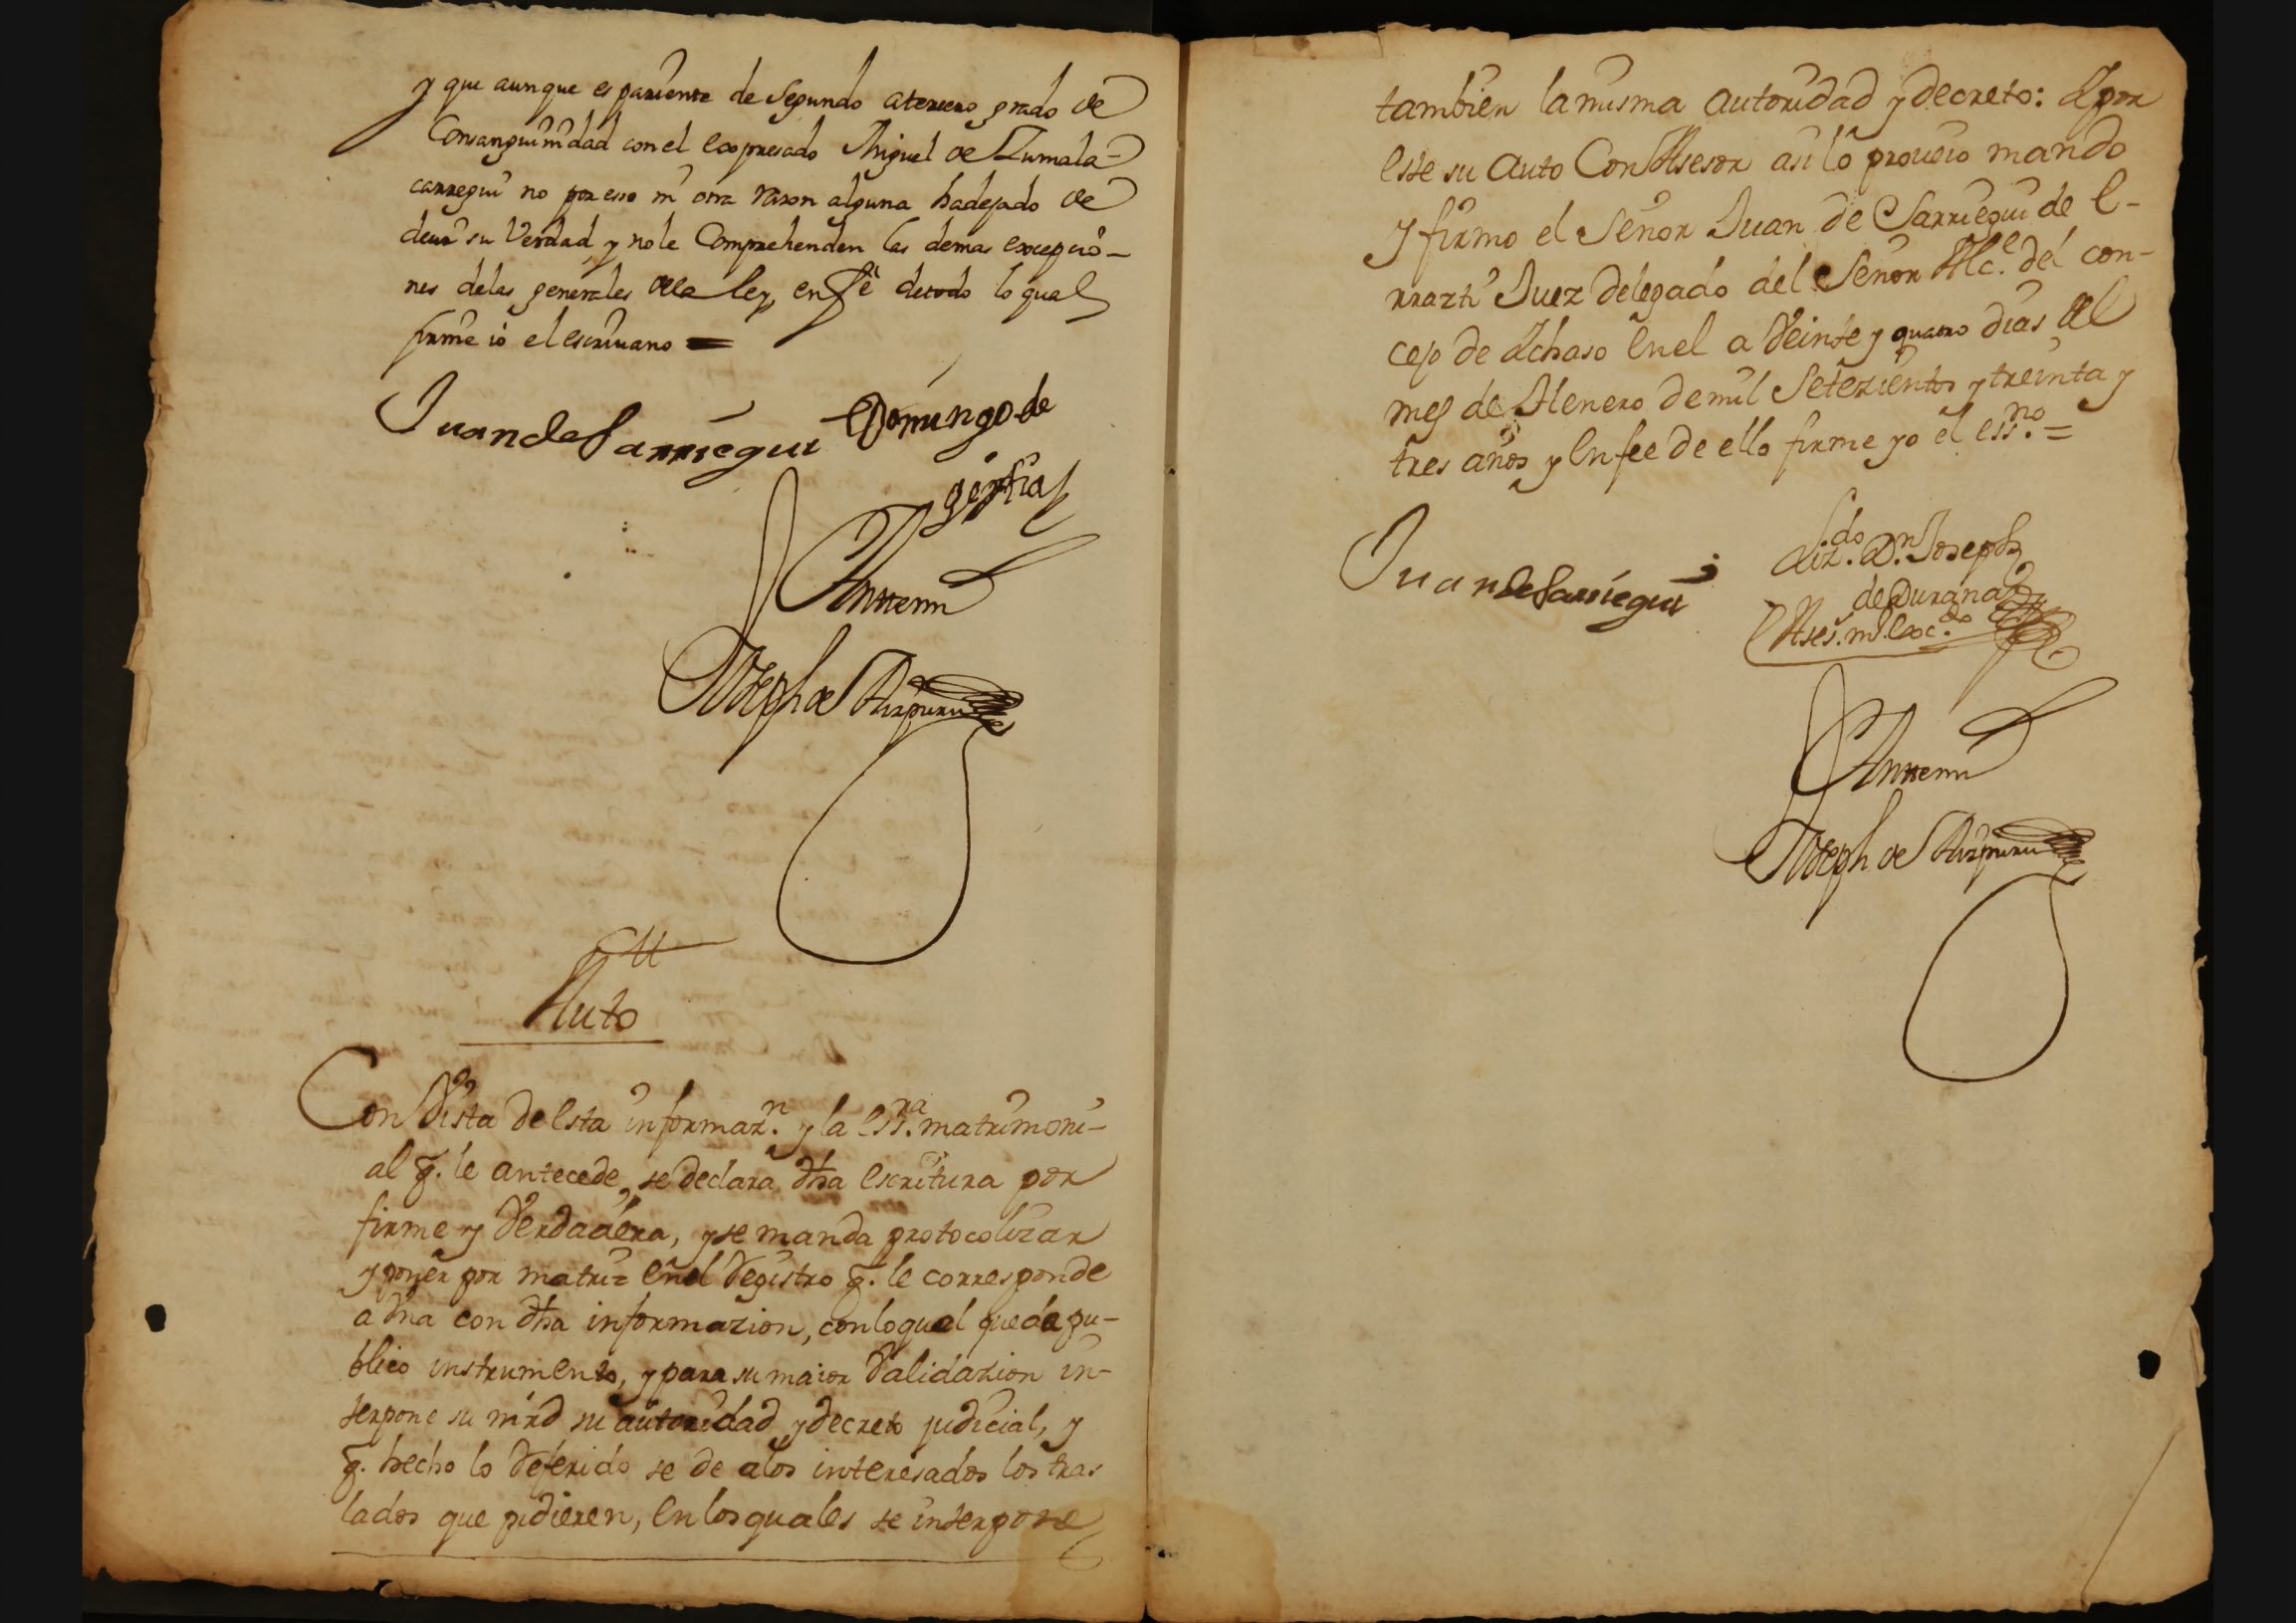 y que aunque es pariente de Segundo a tercero grado de
Consanguinidad con el expresado Miguel de Zumala-
carregui no por esso ni otra rason alguna ha dejado de
decir su Verdad, y no le Comprehenden las demas excepcio-
nes de las generales de la ley, en fè de todo lo qual
firme io el escrivano =
Juan de Sarriegui Domingo de
Antemi
Joseph de Aizpuru
Auto
Con Vista de esta informaz.n y la ess.ra matrimoni-
al q. le antecede, se declara dha escritura por
firme y Verdadera, y se manda protocolizar
y poner por matriz en el Registro q. le corresponde
a dha con dha informazion, con lo qual queda pu-
blico instrumento, y para su maior Validazion in-
terpone su mrd su autoridad y decreto judicial, y
q. hecho lo Referido se de a los interesados los tras
lados que pidieren, en los quales se interpone
tambien la misma autoridad y decreto: I por
este su auto Con Asesor asi lo proveio mando
y firmo el Señor Juan de Sarriegui de E-
rrazti Juez delegado del Señor Alc.e del con-
cejo de Ichaso en el a Veinte y quatro dias del
mes de Henero de mil Setezientos y treinta y
tres años y en fee de ello firme yo el ess.no =
Juan de Sarriegui
Liz.do D.n Joseph
de Durana
Antemi
Joseph de Aizpuru